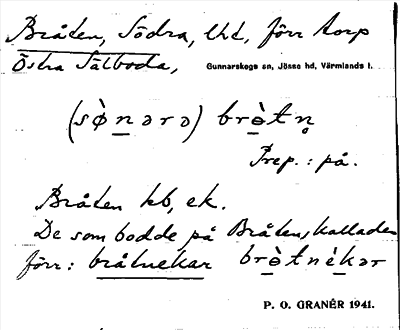 Bråten, Södra, lht, förr torp
Östra Sälboda, Gunnarskogs sn, Jösse hd, Värmlands l.
(sø̀nərə) brètn̥
Prep.: på.
Bråten kb, ek.
De som bodde på Bråten, kallades
förr: bråtnekar brètnèkər
P. O. GRANÉR 1941.